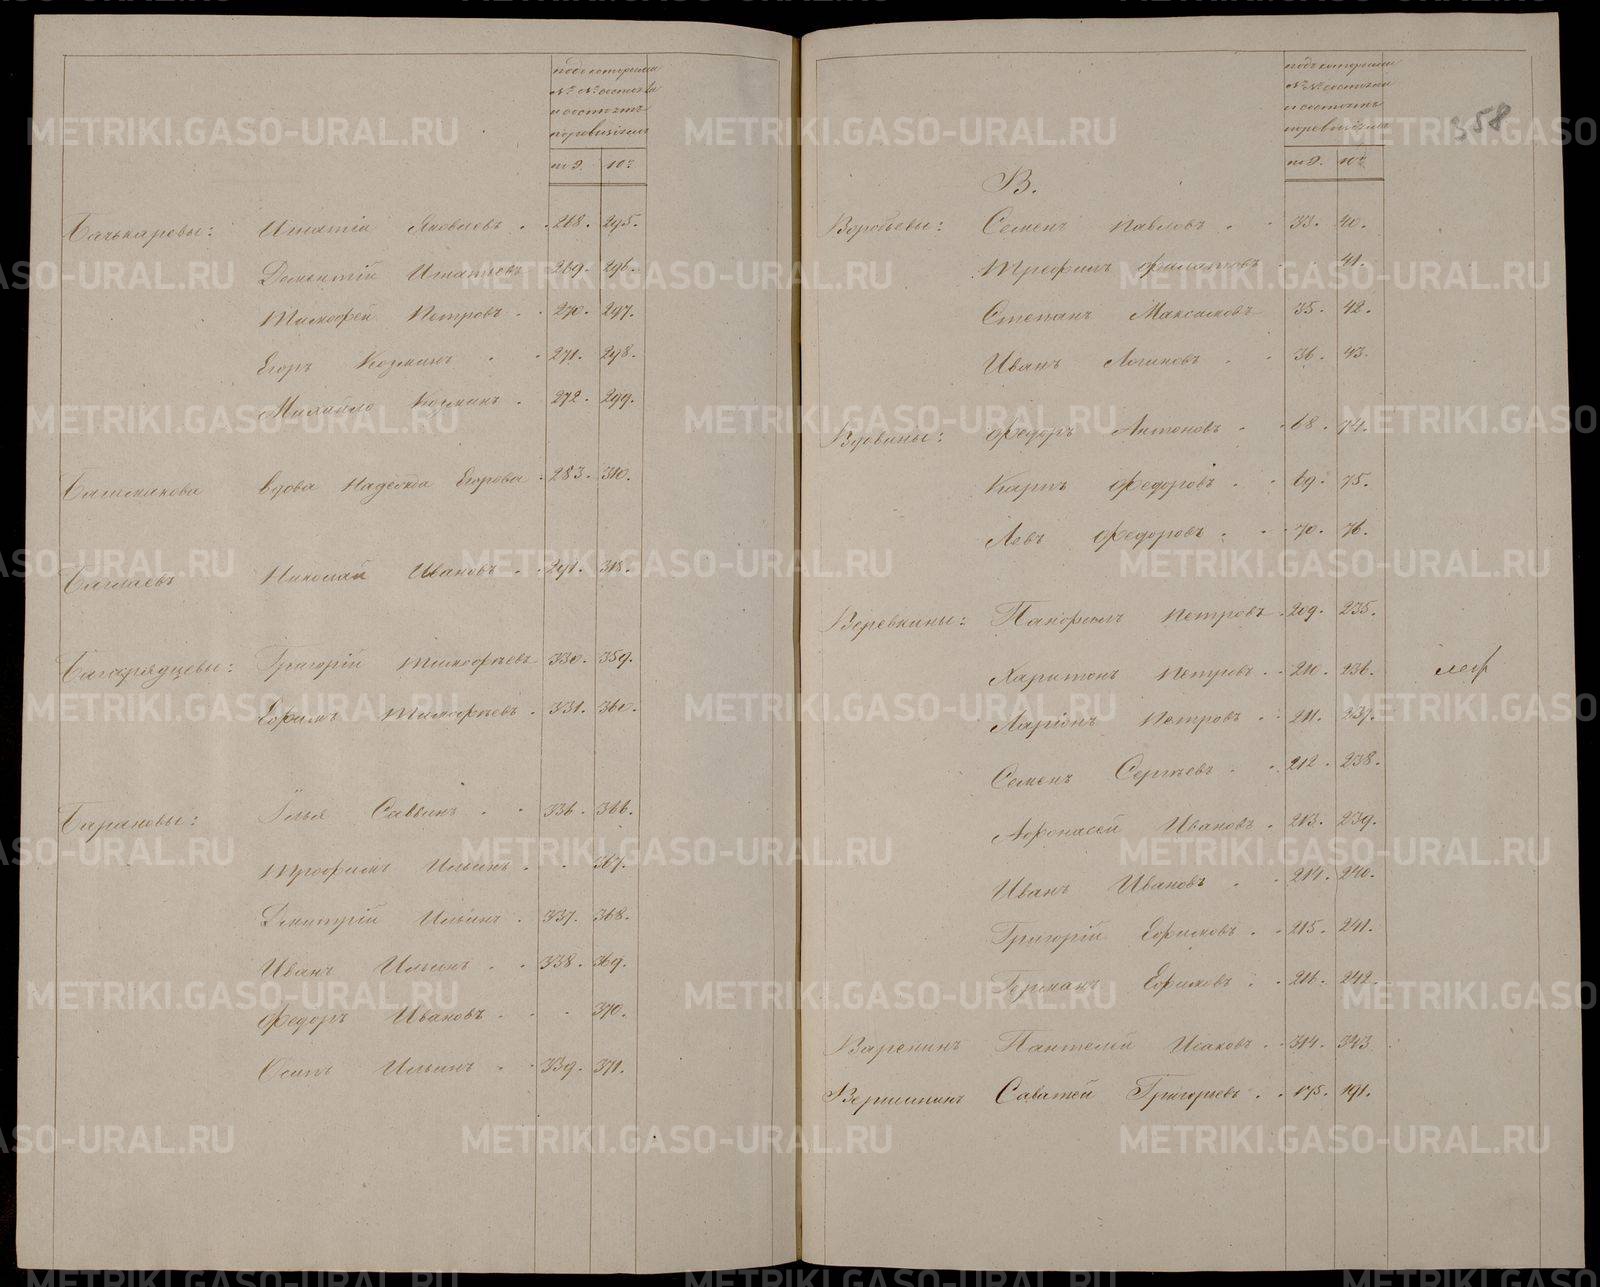 подъ которыми
№ № состояли
и состоятъ
по ревизiямъ
по 9. 10й
Батькаревы: Игнатiй Яковлевъ . . 268. 295.
Дементiй Игнатьевъ 269. 296.
Тимофей Петровъ . . 270. 297.
Егоръ Козминъ . . 271. 298.
Михайло Козминъ . 272. 299.
вдова Надежда Егорова . 283. 310.
Николай Ивановъ . . 291. 318.
Григорiй Тимофѣевъ 330. 359.
Ефимъ Тимофѣевъ . 331. 360.
Барановы: Илья Саввинъ . . 336. 366.
Трофимъ Ильинъ . . 367.
Дмитрiй Ильинъ . 337. 368.
Иванъ Ильинъ . . 338. 369.
Федоръ Ивановъ . . . 370.
Осипъ Ильинъ . . 339. 371.
подъ которыми
№ № состояли
и состоятъ
по ревизiямъ
по 9. 10й
358
В.
Воробьевы: Семенъ Павловъ . . 33. 40.
Трофимъ Филатовъ . . 41.
Степанъ Максимовъ 35. 42.
Иванъ Логиновъ . . 36. 43.
Вдовины: Федоръ Антоновъ . . 68. 74.
Карпъ Федоровъ . . 69. 75.
Левъ Федоровъ . . 70. 76.
Веревкины: Панфилъ Петровъ . 209. 235.
Харитонъ Петровъ . . 210. 236.
Ларiонъ Петровъ . . 211. 237.
Семенъ Сергѣевъ . . 212. 238.
Афонасей Ивановъ . 213. 239.
Иванъ Ивановъ . . 214. 240.
Григорiй Ефимовъ . . 215. 241.
Германъ Ефимовъ . . 216. 242.
Варенинъ Пантелей Исаковъ . . 314. 343.
Вершининъ Саватей Григорьевъ . . 175. 191.
METRIKI.GASO-URAL.RU